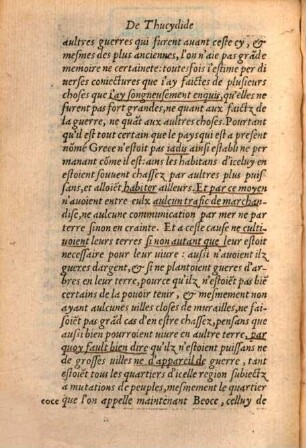 De Thucydide
aultres guerres qui furent auant ceste cy, &
mesmes des plus anciennes, l'on n'aie pas grāde
memoire ne certainete: toutesfois i'estime per di
uerses coniectures que i'ay faictes de plusieurs
choses que i'ay songneusement enquis, qu'elles ne
furent pas fort grandes, ne quant aux faictz de
la guerre, ne quāt aux aultres choses. Pourtant
qu'il est tout certain que le pays qui est a present
nōmé Grece n'estoit pas iadis ainsi estably ne per
manant cōme il est: ains les habitans d'iceluy en
estoient souuent chassez par aultres plus puis
sans, et alloiēt habiter ailleurs. Et par ce moyen
n'auoient entre eulx aulcun trafic de marchan
dise, ne aulcune communication par mer ne par
terre sinon en crainte. Et a ceste cause ne culti-
uoient leurs terres si non autant que leur estoit
necessaire pour leur uiure: aussi n'auoient ilz
gueres d'argent, & si ne plantoient gueres d'ar
bres en leur terre, pource qu'ilz n'estoiēt pas biē
certains de la pouoir tenir, & mesmement non
ayant aulcunes uilles closes de murailles, ne fai
soiēt pas grād cas d'en estre chassez, pensans que
aussi bien pourroient uiure en aultre terre, par
quoy fault bien dire qu'ilz n'estoiēt puissans ne
de grosses uilles ne d'appareil de guerre, tant
estoiēt tous les quartiers d'icelle region subiectz
a mutations de peuples, mesmement le quartier
eoce que l'on appelle maintenant Beoce, celluy de